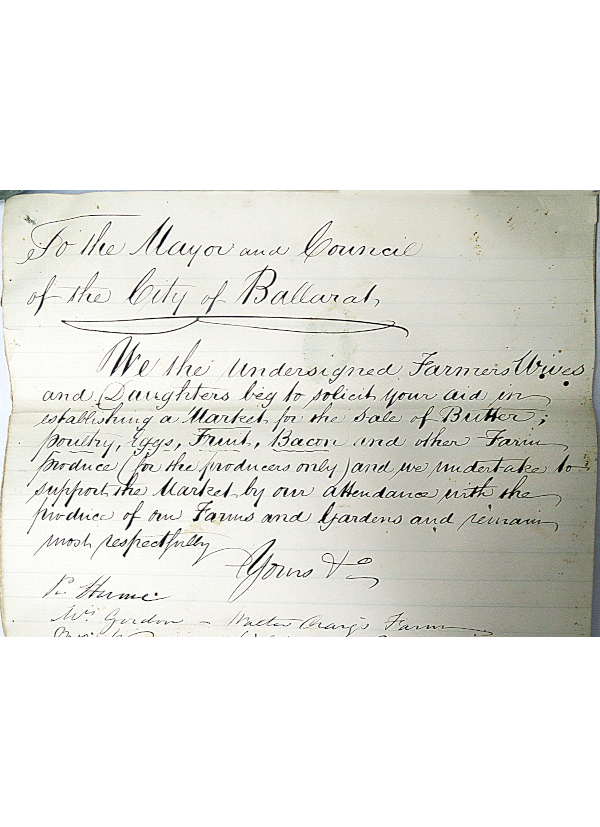 To the Mayor and Council
of the City of Ballarat
We the undersigned Farmers Wives
and Daughters beg to solicit your aid in
establishing a Market for the Sale of Butter;
poultry, Eggs, Fruit, Bacon and other Farm
produce (for the producers only) and we undertake to
support the Market by our attendance with the
produce of our Farms and Gardens and remain
most respectfully
Yours &c
Hume
Mrs Gordon – Walter Craig's Farm